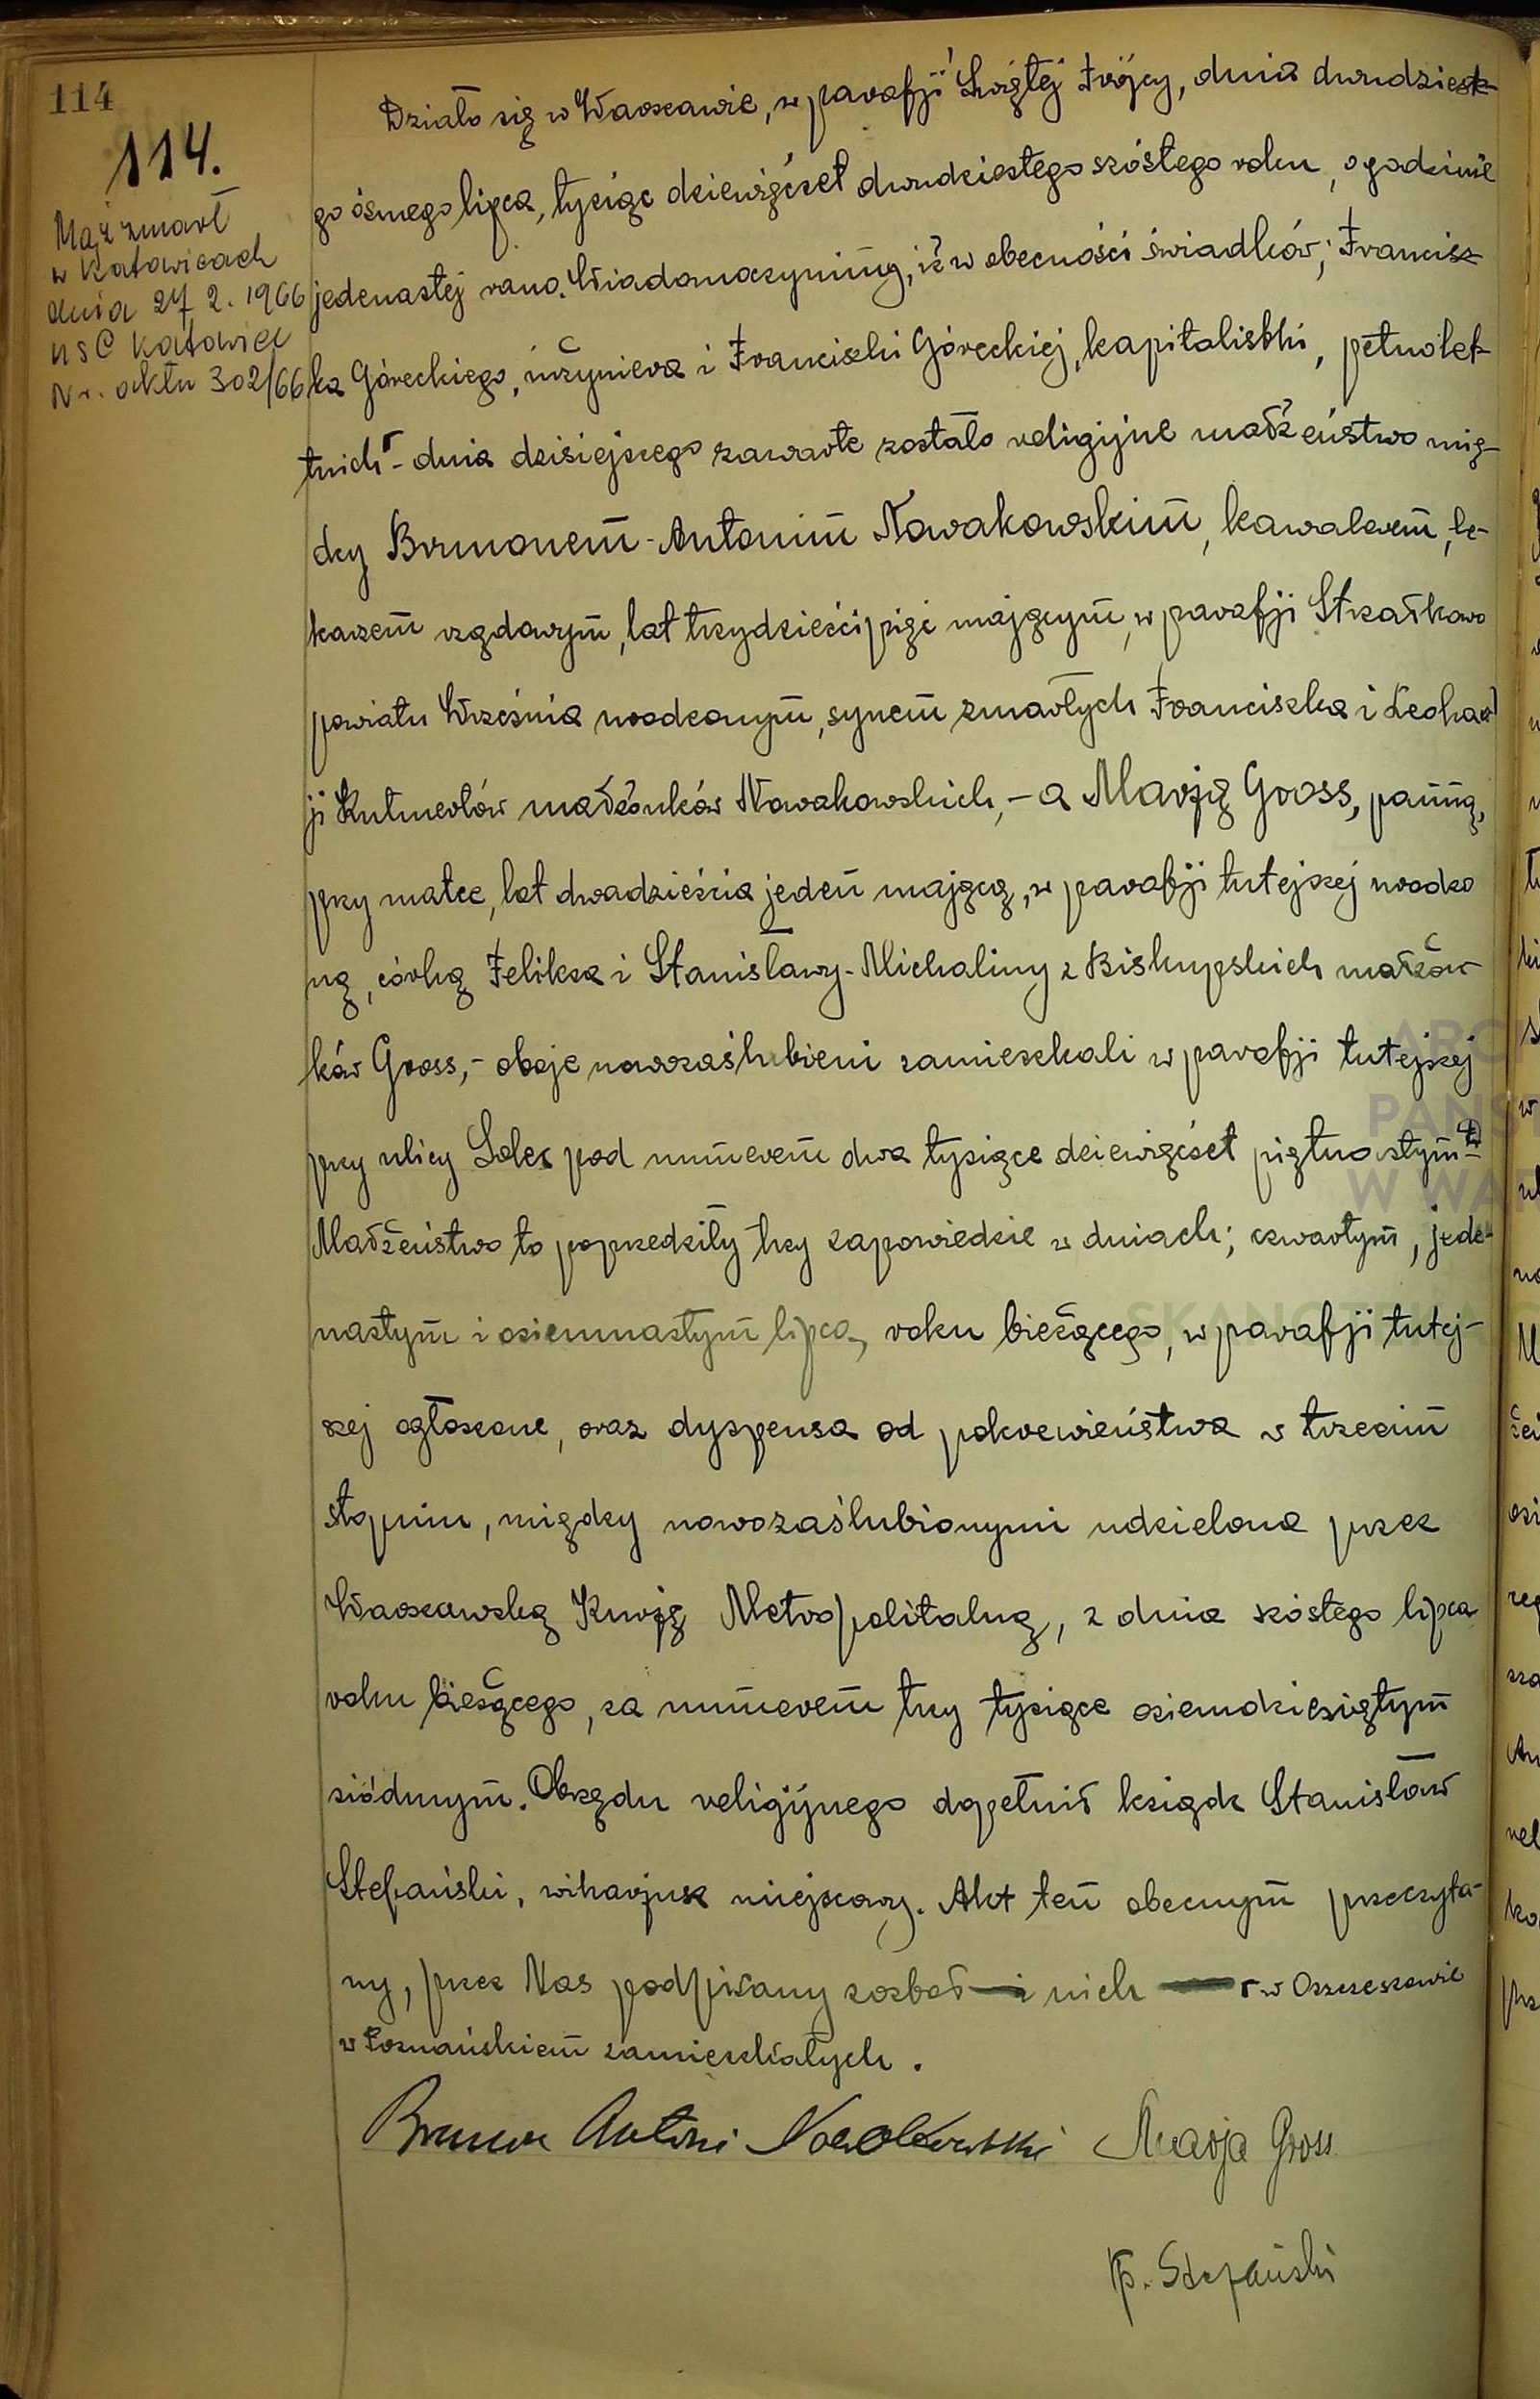 114
114.
Mąż zmarł
w Katowicach
dnia 27 2. 1966
USC Katowice
Nr. aktu 302/66
Działo się w Warszawie, w parafji Świętej Trójcy, dnia dwudzieste-
go ósmego lipca, tysiąc dziewięćset dwudziestego szóstego roku, o godzinie
jedenastej rano. Wiadomo czynimy, iż w obecności świadków; Francisz-
ka Góreckiego, inżyniera i Franciszki Góreckiej, kapitalistki, pełnolet-
tnich - dnia dzisiejszego zawarte zostało religijne małżeństwo mię-
dzy Brunonem-Antonim Nowakowskim, kawalerem, le-
karzem rządowym, lat trzydzieści pięć mającym, w parafji Strzałkowo
powiatu Września urodzonym, synem zmarłych Franciszka i Leokad
ji Kutnerów małżonków Nowakowskich, - a Marją Gross, panną,
przy matce, lat dwadzieścia jeden mającą, w parafji tutejszej urodzo
ną, córką Feliksa i Stanisławy-Michaliny z Biskupskich małżon-
ków Gross, - oboje nowozaślubieni zamieszkali w parafji tutejszej
przy ulicy Solec pod numerem dwa tysiące dziewięćset piętnastym
Małżeństwo to poprzedziły trzy zapowiedzie w dniach; czwartym, jede-
nastym i osiemnastym lipca, roku bieżącego, w parafji tutej-
szej ogłoszone, oraz dyspensa od pokrewieństwa w trzecim
stopniu, między nowozaślubionymi udzielona przez
Warszawską Kurją Metropolitalną, z dnia szóstego lipca
roku bieżącego, za numerem trzy tysiące osiemdziesiątym
siódmym. Obrzędu religijnego dopełnił ksiądz Stanisław
Stefański, wikarjusz miejscowy. Akt ten obecnym przeczyta-
ny, przez Nas podpisany został i nich w
w Poznańskiem zamieszkałych.
Bruno Antoni Nowakowski Marja Gross
Stefański
ARC
PAŃST
W WAR
SKAN